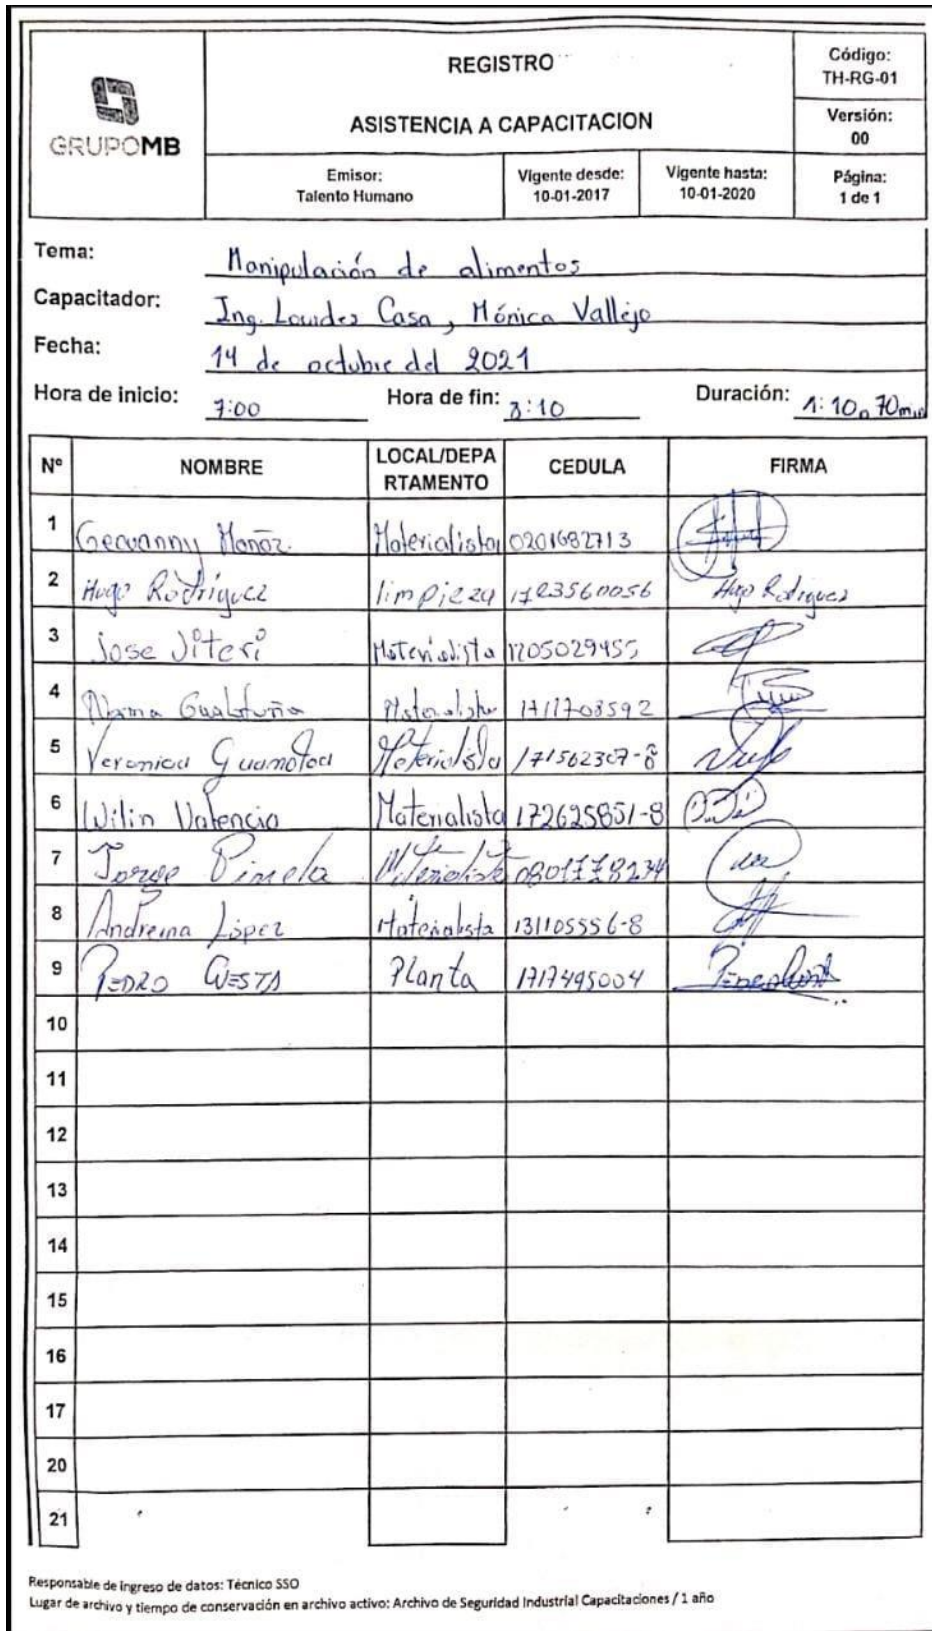 GRUPOMB
REGISTRO
ASISTENCIA A CAPACITACION
Código:
TH-RG-01
Versión:
00
Emisor:
Talento Humano
Vigente desde:
10-01-2017
Vigente hasta:
10-01-2020
Página:
1 de 1
Tema: Manipulación de alimentos
Capacitador: Ing. Lourdes Casa, Mónica Vallejo
Fecha: 14 de octubre del 2021
Hora de inicio: 7:00 Hora de fin: 8:10 Duración: 1:10 70min
Nº NOMBRE LOCAL/DEPA RTAMENTO CEDULA FIRMA
1 Geovanny Monoz Materialista 0201682713
2 Hugo Rodríguez limpieza 1723560056 Hugo Rodriguez
3 Jose Viteri Materialista 1205029455
4 Materialista 1711708592
5 Veronica Materialista 171562307-8
6 Wilin Valencia Materialista 172625851-8
7 Jorge Pimela Materialista
8 Andreina López Materialista 131105556-8
9 PEDRO CUESTA Planta 1717495004
10
11
12
13
14
15
16
17
20
21
Responsable de ingreso de datos: Técnico SSO
Lugar de archivo y tiempo de conservación en archivo activo: Archivo de Seguridad Industrial Capacitaciones / 1 año